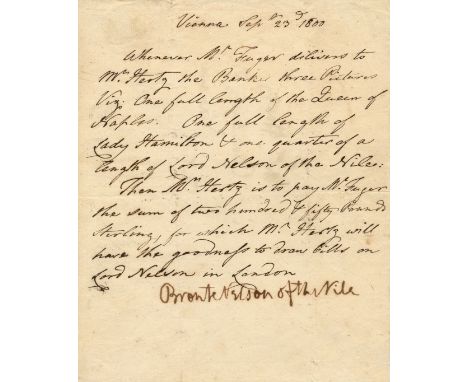 Vienna Sepr. 23d 1800
Whenever Mr Fuger dilivers to
Mr Hertz the Banker three Pictures
Viz: One full length of the Queen of
Naples. One full length of
Lady Hamilton & one quarter of a
length of Lord Nelson of the Nile:
Then Mr Hertz is to pay Mr Fuger
the sum of two hundred & fifty Pounds
Sterling, for which Mr Hertz will
have the goodness to draw bills on
Lord Nelson in London
Bronte Nelson of the Nile